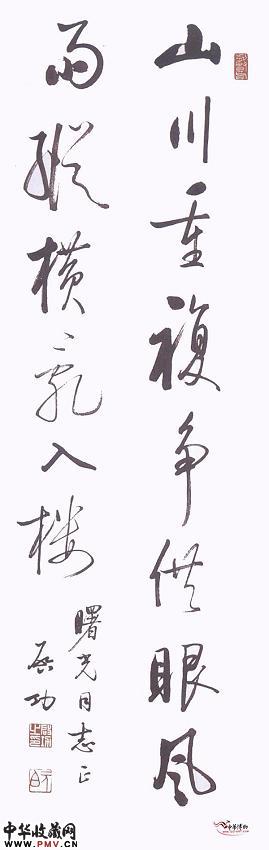 山川重複争供眼風
雨縱橫亂入楼
曙光同志正
启功
中华收藏网
www.PMV.CN
中华博物